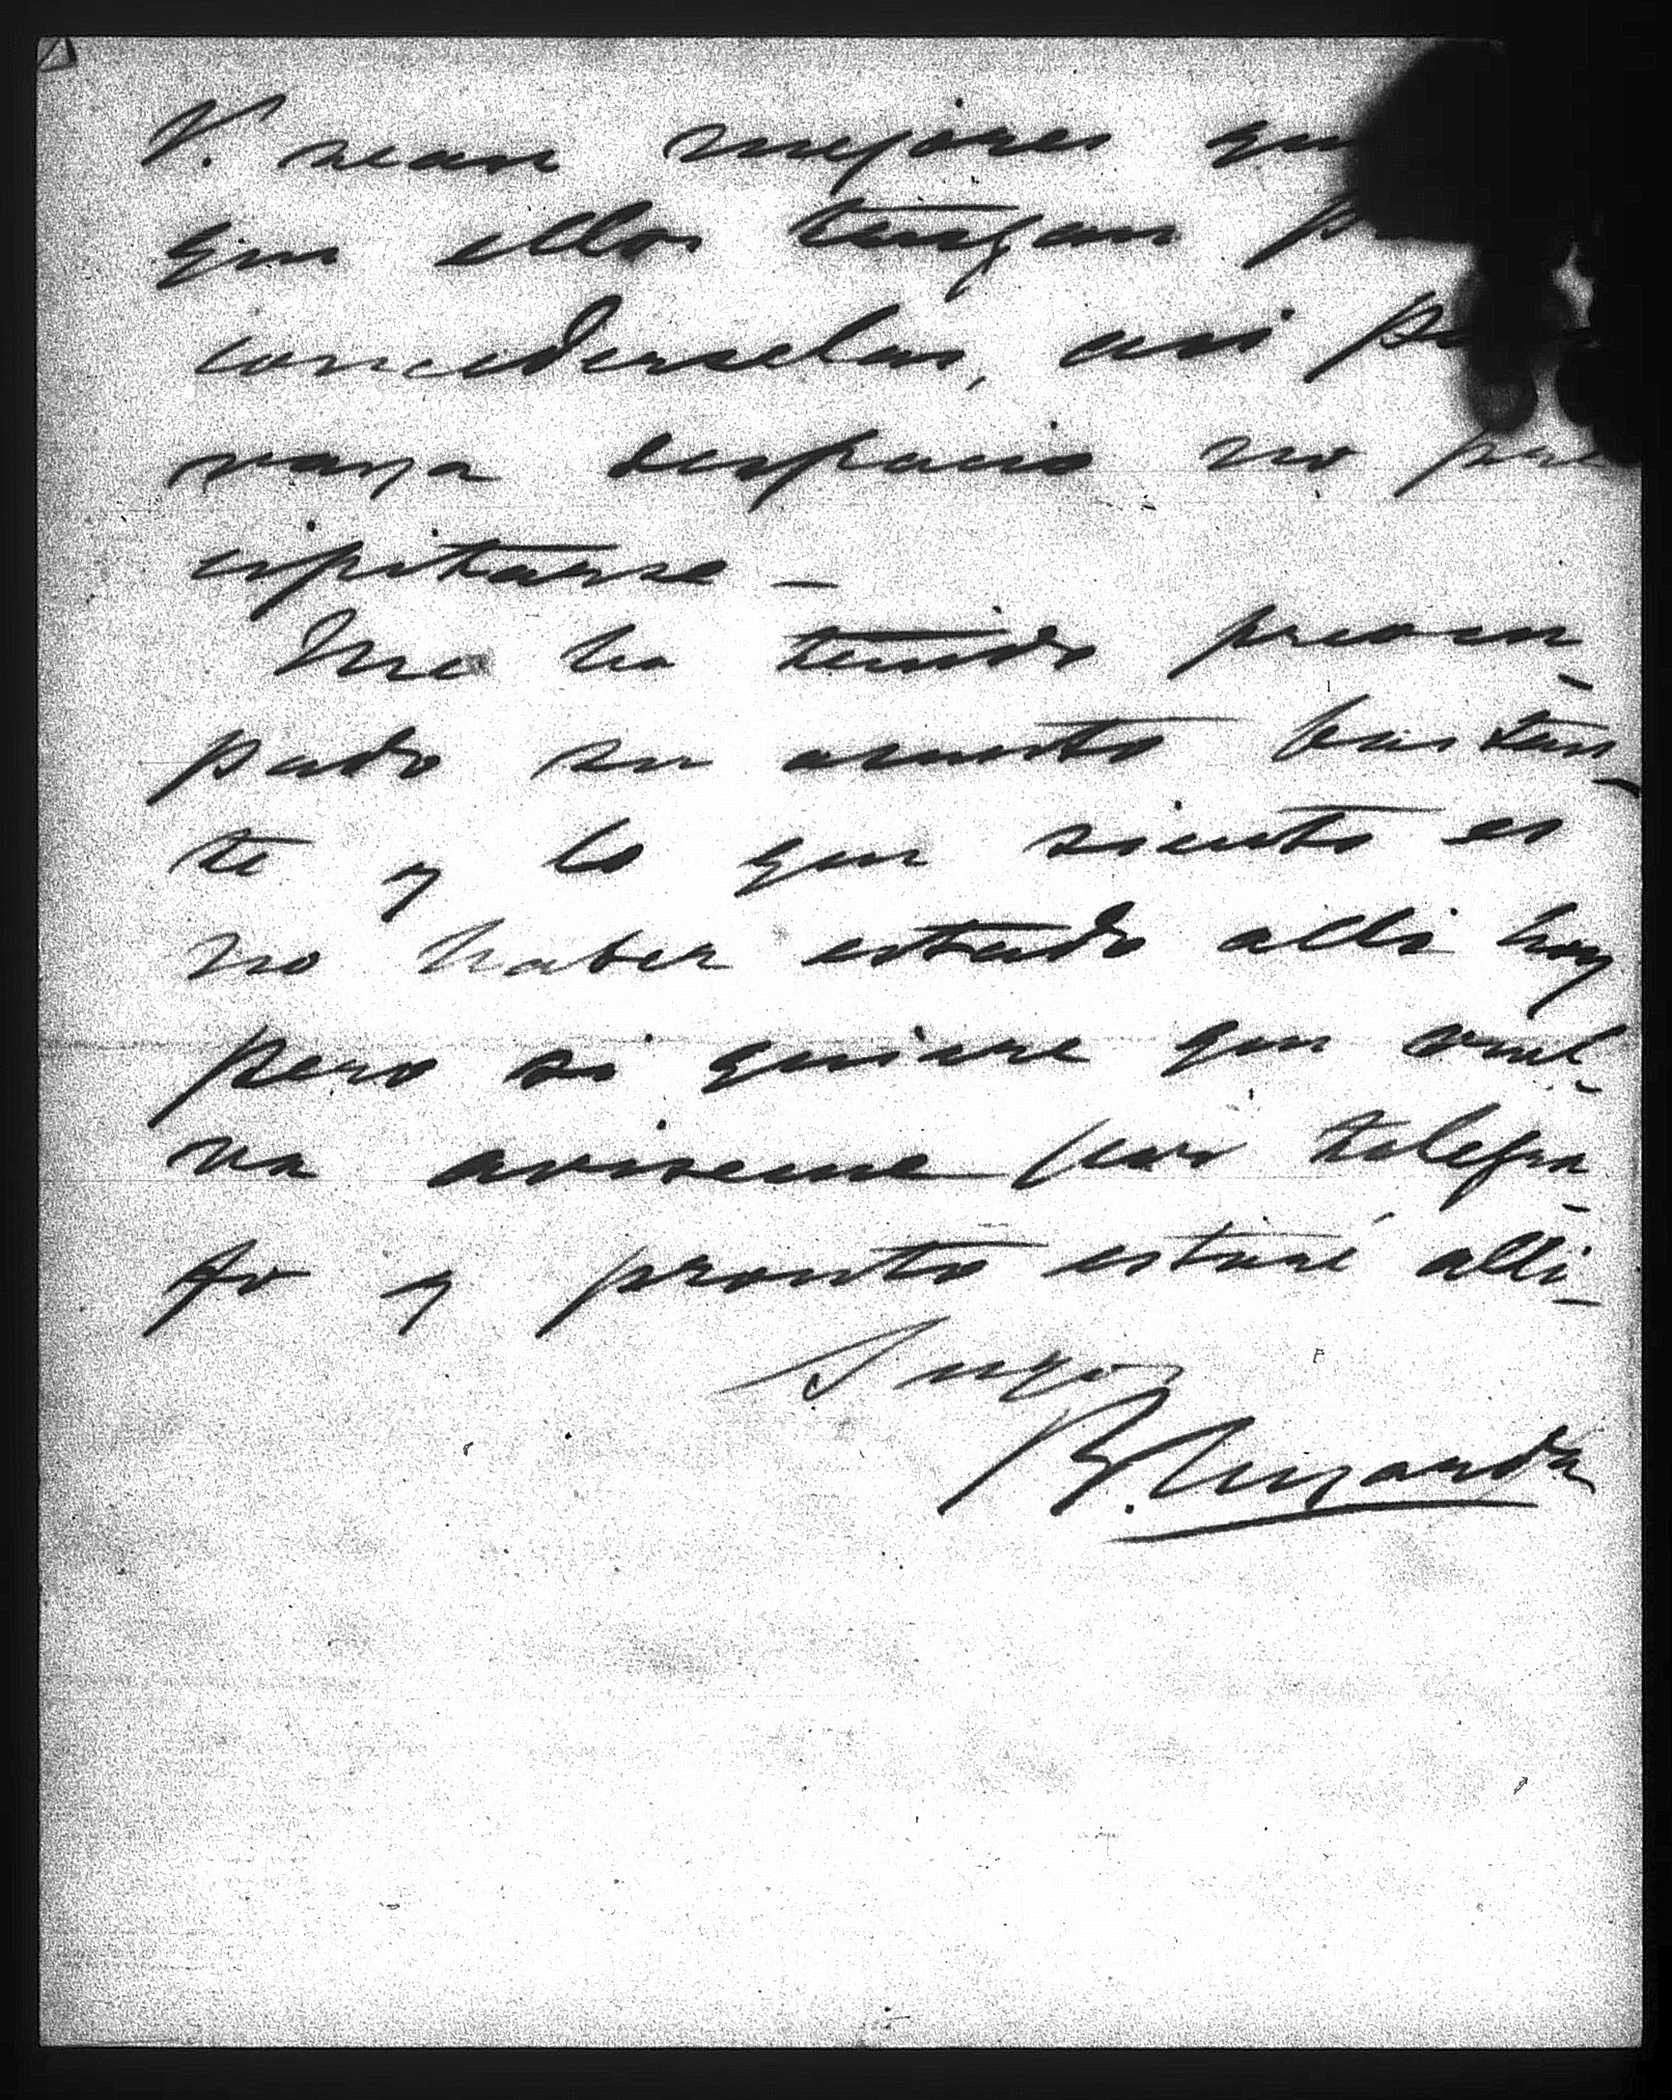 V. sean mejores que
que ellos tengan
concederselas, asi
vaya despacio no pre
cipitarse —
Me ha tenido preocu-
pado su asunto bastan-
te y lo que siento es
no haber estado alli hoy
pero si quiere que vuel-
va aviseme por telegra-
fo y pronto estaré alli-
Suyo
R. Luzarda